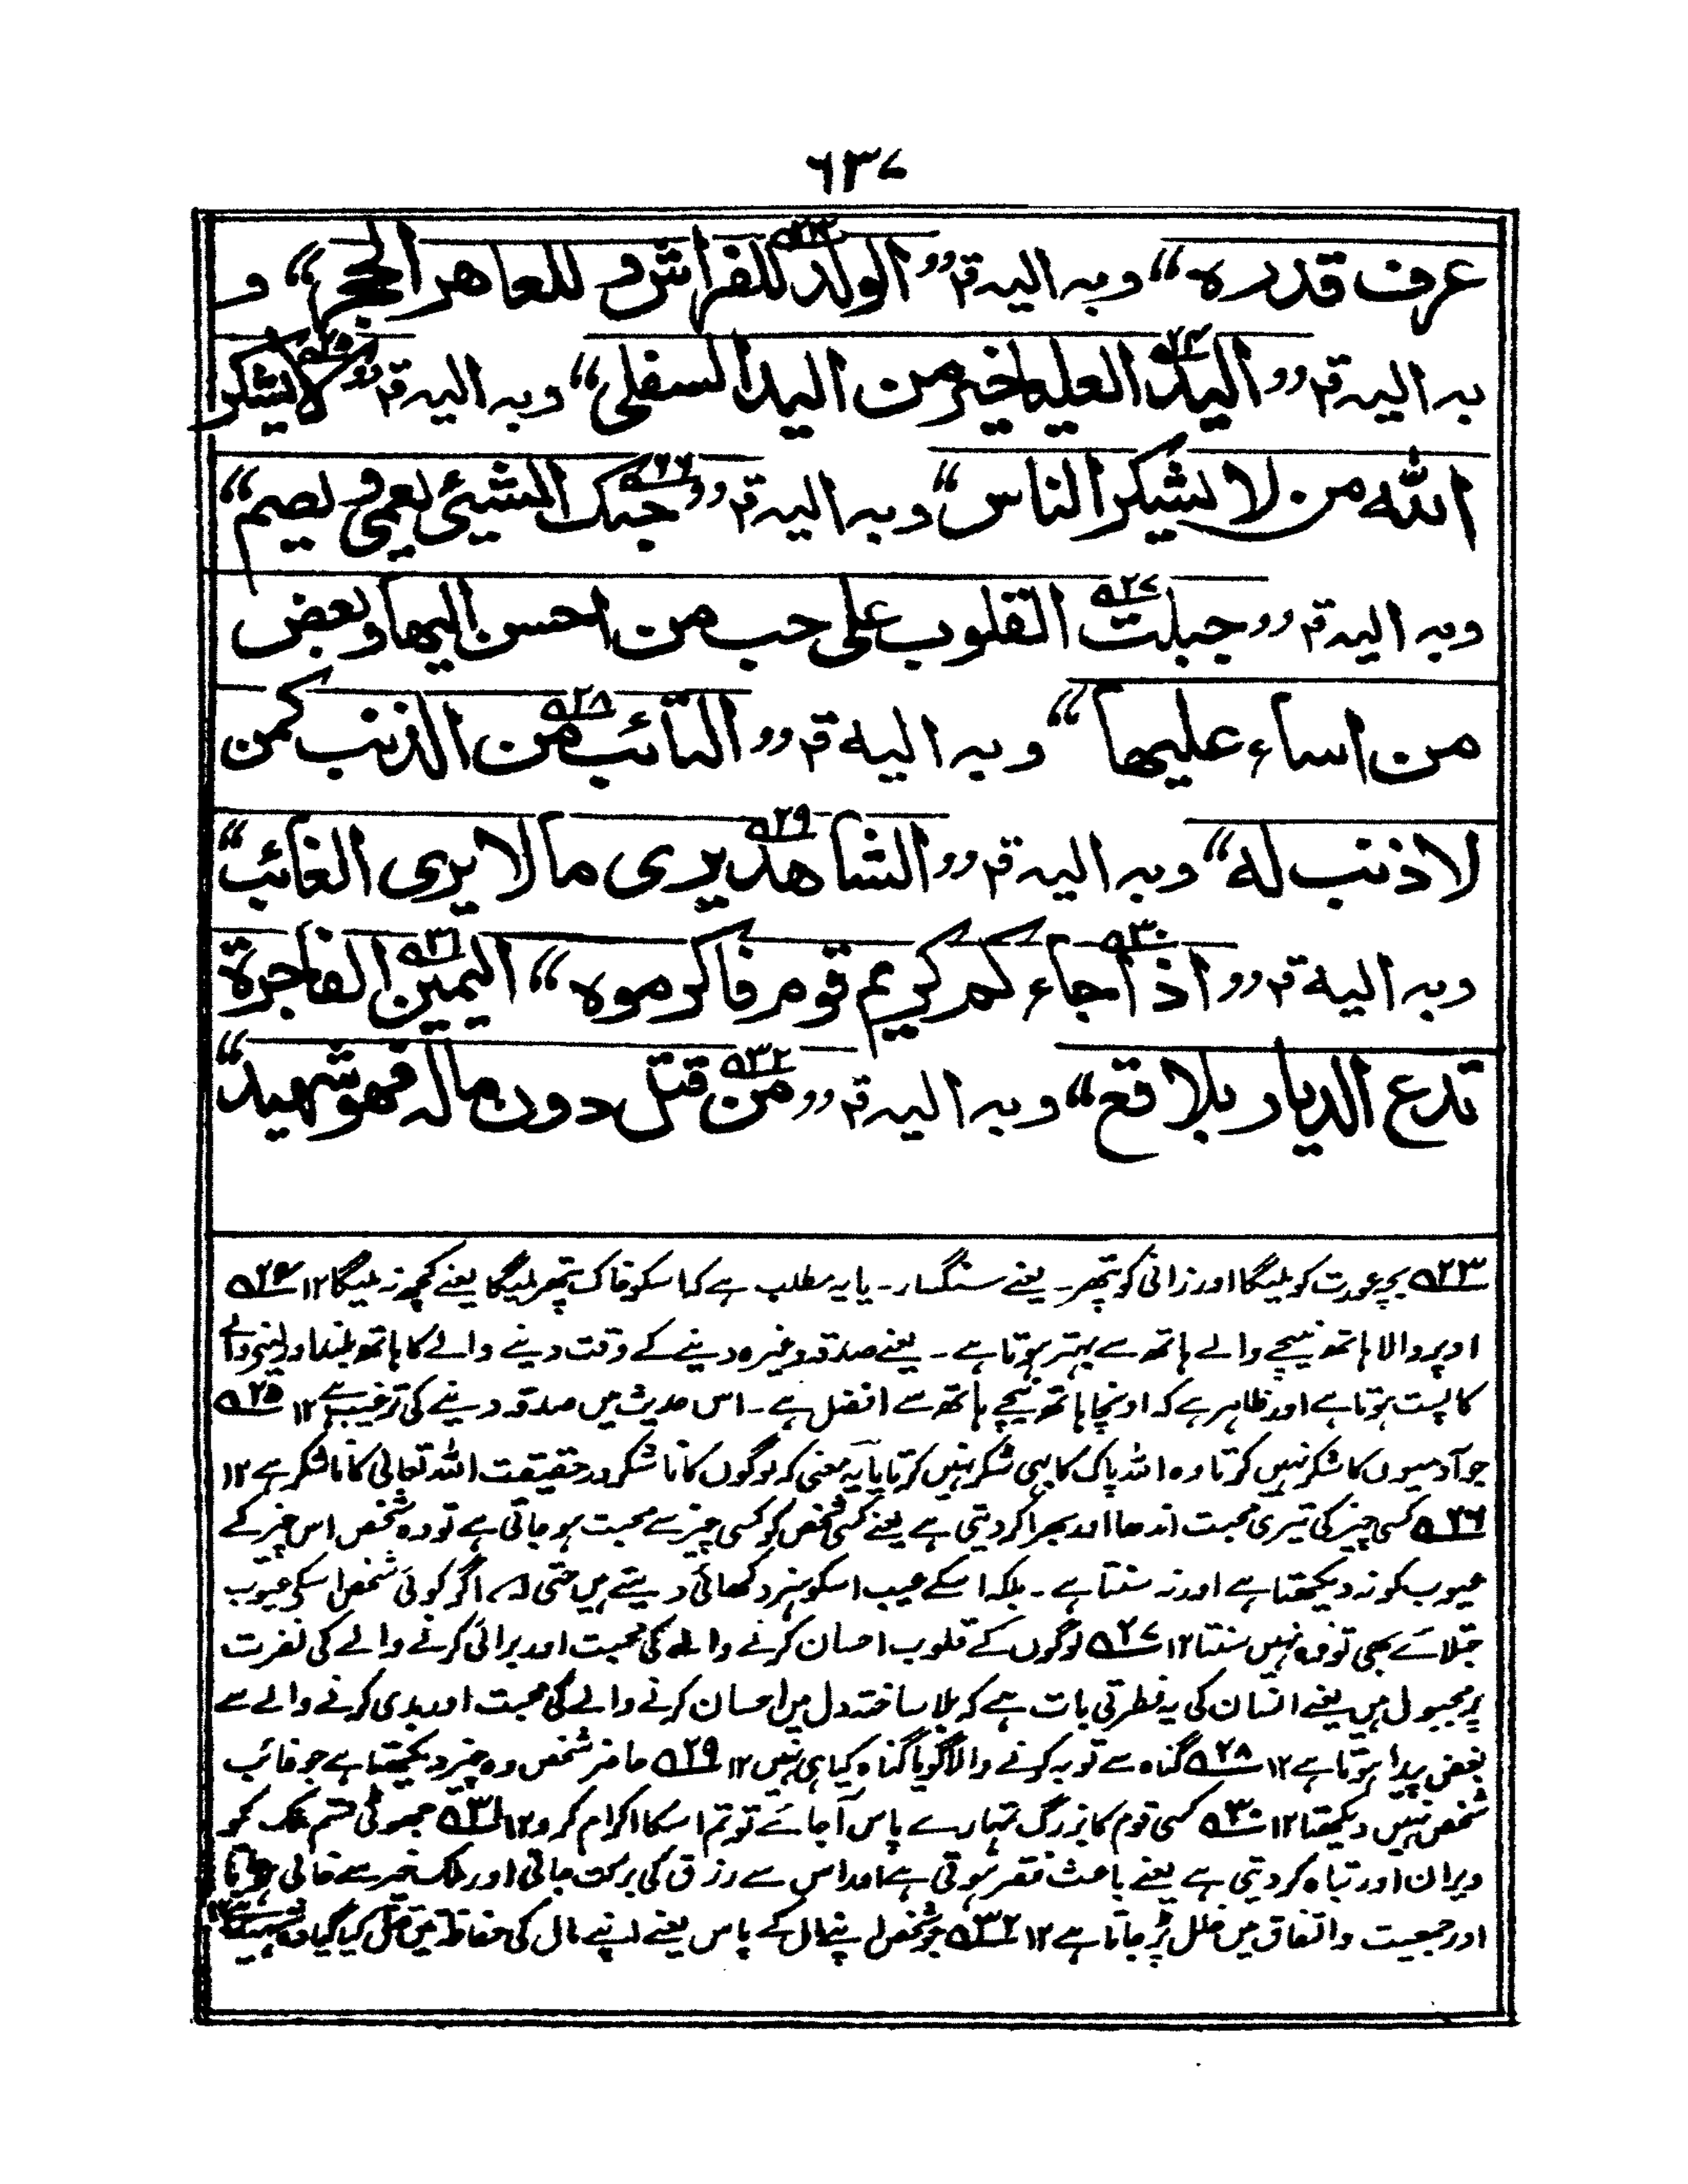 ۶۳۷
عرف قدرہ“ وبہ الیہ قم ”الولد ۵۲۳ للفراش و للعاھر الحجر“ و
بہ الیہ قم ”الید ۵۲۴ العلیا خیر من الید السفلی“ وبہ الیہ قم ”لا یشکر ۵۲۵
اللہ من لا یشکر الناس“ وبہ الیہ قم ”حبک ۵۲۶ الشیئ یعمی و یصم“
وبہ الیہ قم ”جبلت ۵۲۷ القلوب علی حب من احسن الیھا و بعض
من اساء علیھا“ وبہ الیہ قم ”التائب ۵۲۸ من الذنب کمن
لا ذنب لہ“ وبہ الیہ قم ”الشاھد ۵۲۹ یری ما لا یری الغائب“
وبہ الیہ قم ”اذا ۵۳۰ جاء کم کریم قوم فاکرموہ“ الیمین ۵۳۱ الفاجرۃ
تدع الدیار بلاقع“ وبہ الیہ قم ”من ۵۳۲ قتل دون مالہ فھو شھید“
۵۲۳ بچہ عورت کو ملیگا اور زانی کو پتھر۔ یعنے سنگسار۔ یا یہ مطلب ہے کہ اسکو خاک پتھر ملیگا یعنے کچھ نہ ملیگا ۱۲ ۵۲۴
اوپر والا ہاتھ نیچے والے ہاتھ سے بہتر ہوتا ہے۔ یعنے صدقہ وغیرہ دینے کے وقت دینے والے کا ہاتھ بلند اور لینے والے
کا پست ہوتا ہے اور ظاہر ہے کہ اونچا ہاتھ نیچے ہاتھ سے افضل ہے۔ اس حدیث میں صدقہ دینے کی ترغیب ہے ۱۲ ۵۲۵
جو آدمیوں کا شکر نہیں کرتا وہ اللہ پاک کا بہی شکر نہیں کرتا یا یہ معنی کہ لوگوں کا ناشکر در حقیقت اللہ تعالی کا ناشکر ہے ۱۲
۵۲۶ کسی چیز کی تیری محبت اندھا اور بھرا کر دیتی ہے یعنے کسی شخص کو کسی چیز سے محبت ہو جاتی ہے تو وہ شخص اس چیز کے
عیوب کو نہ دیکھتا ہے اور نہ سنتا ہے۔ بلکہ اسکے عیب اسکو ہنر دکھائی دیتے ہیں حتی کہ اگر کوئی شخص اسکی عیوب
جتلائے بھی تو وہ نہیں سنتا ۱۲ ۵۲۷ لوگوں کے قلوب احسان کرنے والے کی محبت اور برائی کرنے والے کی نفرت
پر مجبول ہیں یعنے انسان کی یہ فطرتی بات ہے کہ بلا ساختہ دل میں احسان کرنے والے کی محبت اور بدی کرنے والے سے
بغض پیدا ہوتا ہے ۱۲ ۵۲۸ گناہ سے توبہ کرنے والا گویا گناہ کیا ہی نہیں ۱۲ ۵۲۹ حاضر شخص وہ چیز دیکھتا ہے جو غائب
شخص نہیں دیکھتا ۱۲ ۵۳۰ کسی قوم کا بزرگ تمہارے پاس آ جائے تو تم اسکا اکرام کرو ۱۲ ۵۳۱ جھوٹی قسم ملک کو
ویران اور تباہ کر دیتی ہے یعنے باعث فقر ہوتی ہے اور اس سے رزق کی برکت جاتی اور ملک خیر سے خالی ہو جاتا
اور جمعیت و اتفاق میں خلل پڑ جاتا ہے ۱۲ ۵۳۲ جو شخص اپنے مال کے پاس یعنے اپنے مال کی حفاظت میں قتل کیا گیا وہ شہید ہے ۱۲